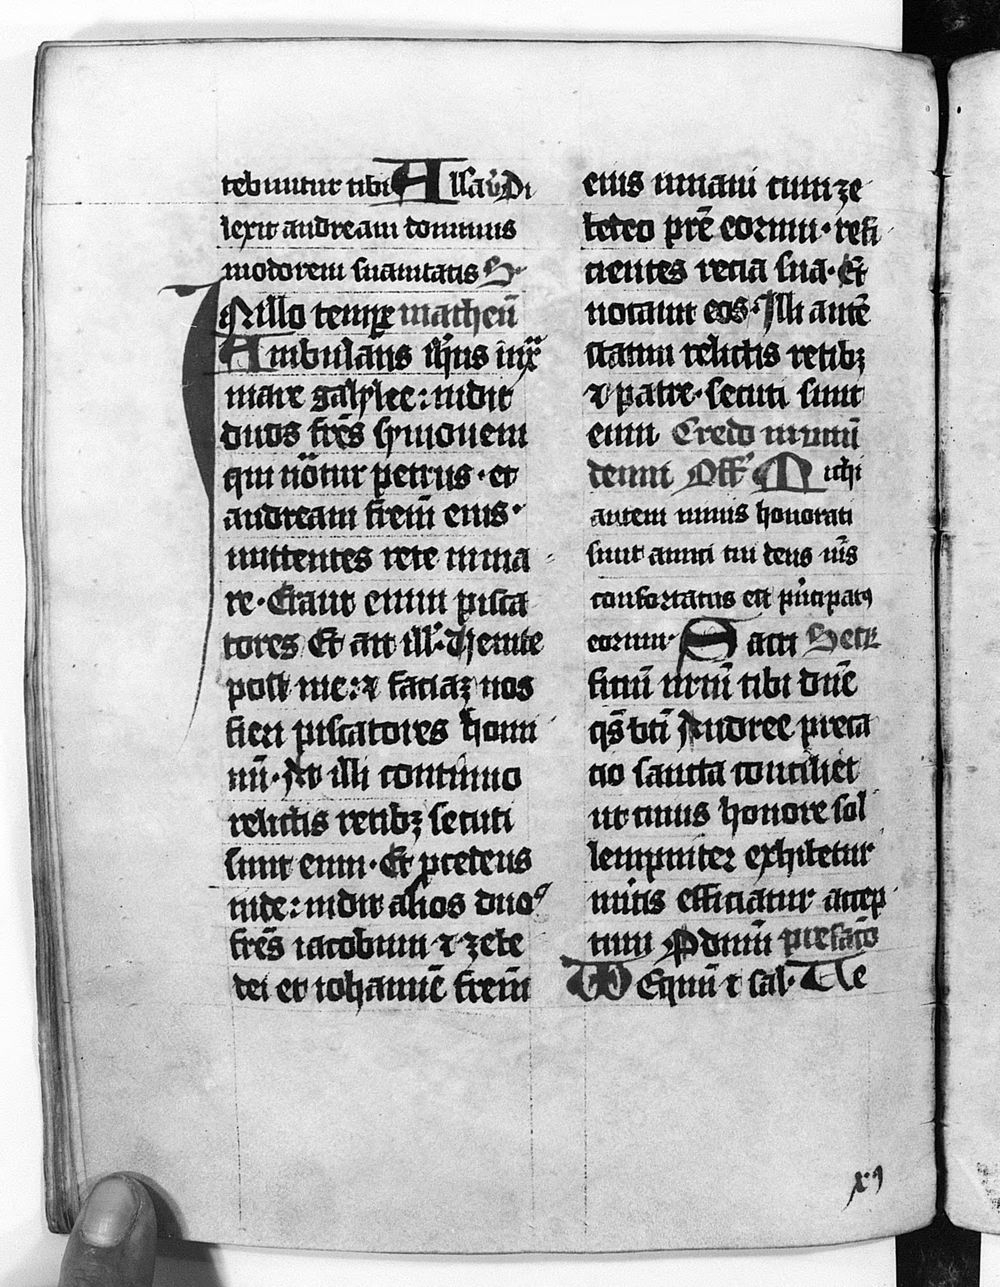 tebuntur tibi All'a v̓ Di
lexit andream dominus
inodorem suauitatis S.
Jn illo tempꝛe matheū
Ambulans ih̓us iuxᵃ
mare galylee: uidit
duos fr̄es symonem
qui uōtur petrus · et
andream frem̄ eius ·
mittentes rete in ma
re · Erant enim pisca
tores Et ait ill'. Uenite
post me: ⁊ faciaꝫ uos
fieri piscatores homi
nū · At illi continuo
relictis retibꝫ secuti
sunt eum · Et p̄cedens
inde: uidit alios duoꝰ
fr̄es iacobum ⁊ zebe
dei et iohannē frem̄
eius in naui cum ze
bedeo pr̄e eorum · refi
cientes recia sua · Et
uocauit eos · Illi autē
statim relictis retibꝫ
⁊ patre · secuti sunt
eum Credo in unū
deum Off' Michi
autem nimis honorati
sunt amici tui deus nr̄s
confortatus est pͥncipatꝰ
eorum · Sacri Secr̄
ficiū nr̄m̄ tibi dn̄e
qs̄ bt̄i Andree preca
cio sancta conciliet
ut cuius honore sol
lempniter exhibetur
mitis efficiatur accep
tum P dnm̄ prefac̄o
VD Equm̄ ⁊ sal · Te
xꝰ